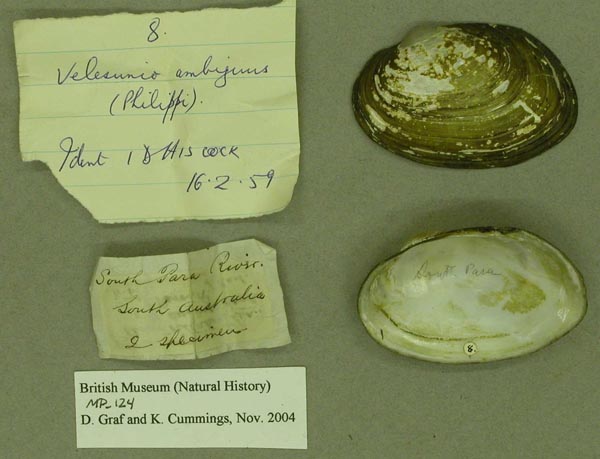 8.
Velesunio ambiguus
(Philippi).
Ident I D HISCOCK
16.2.59
South Para River.
South Australia
2 specimens
British Museum (Natural History)
MP_124
D. Graf and K. Cummings, Nov. 2004
South Para
8.